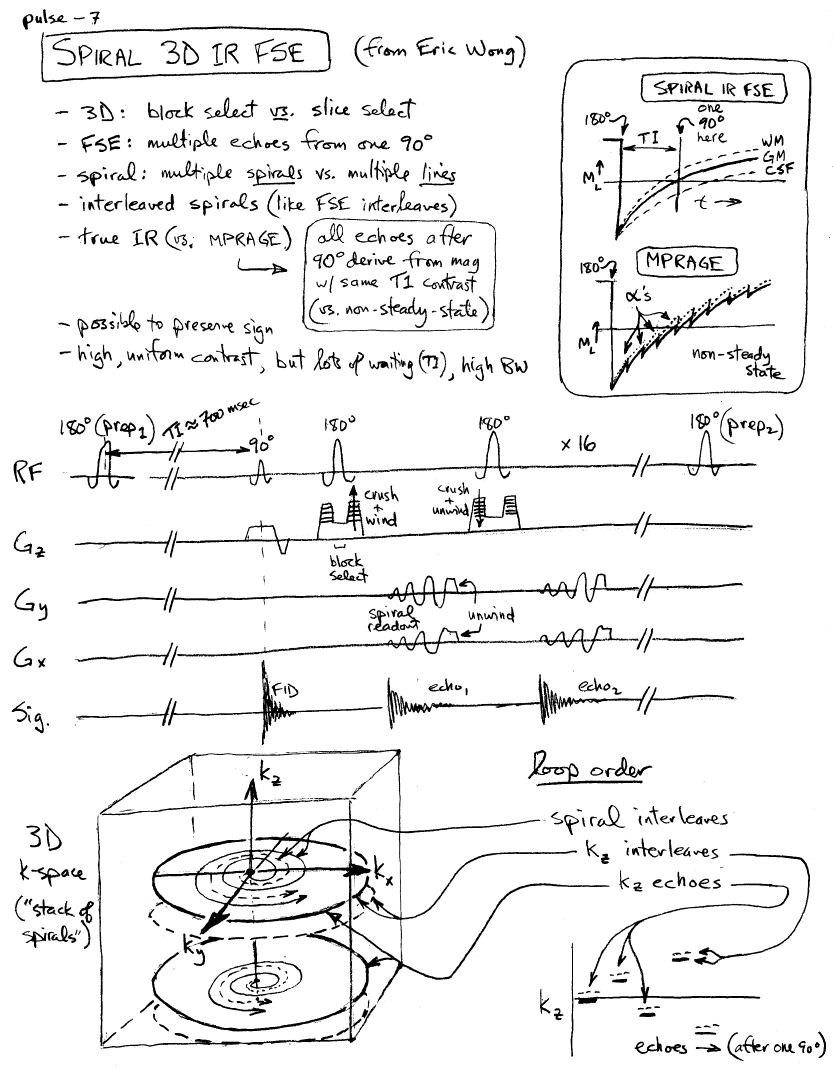 pulse - 7
SPIRAL 3D IR FSE (from Eric Wong)
- 3D: block select vs. slice select
- FSE: multiple echoes from one 90°
- spiral: multiple spirals vs. multiple lines
- interleaved spirals (like FSE interleaves)
- true IR (vs. MPRAGE)
all echoes after
90° derive from mag
w/ same T1 contrast
(vs. non-steady-state)
- possible to preserve sign
- high, uniform contrast, but lots of waiting (TI), high BW
SPIRAL IR FSE
180°
TI
one
90°
here
WM
GM
CSF
M_L
t →
MPRAGE
180°
α's
M_L
non-steady
state
180° (prep₁)
TI ≈ 700 msec
90°
180°
180°
× 16
180° (prep₂)
RF
crush
+
wind
crush
+
unwind
Gz
block
select
Gy
spiral
readout
unwind
Gx
Sig.
FID
echo₁
echo₂
3D
k-space
("stack of
spirals")
kz
kx
ky
loop order
spiral interleaves
kz interleaves
kz echoes
kz
echoes → (after one 90°)